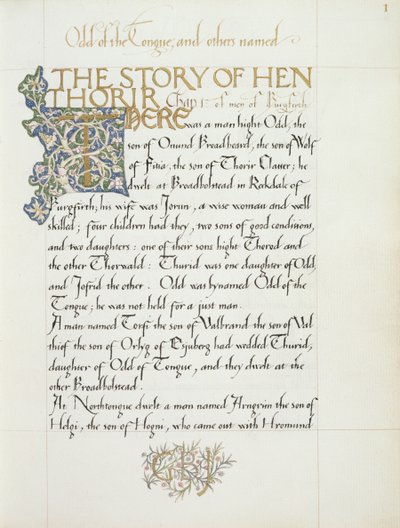 1
Odd of the Tongue, and others named
THE STORY OF HEN
THORIR Chap. I. of men of Burgfirth
THERE
was a man hight Odd, the
son of Onund Broadbeard, the son of Wolf
of Fitia, the son of Thorir Clauer; he
dwelt at Broadbolstead in Rakdale of
Burgfirth; his wife was Jorun, a wise woman and well
skilled; four children had they, two sons of good conditions,
and two daughters: one of their sons hight Thorod and
the other Thorwald: Thurid was one daughter of Odd,
and Jofrid the other. Odd was bynamed Odd of the
Tongue; he was not held for a just man.
A man named Torfi the son of Valbrand the son of Val
thiof the son of Orlyg of Esjuberg had wedded Thurid,
daughter of Odd of Tongue, and they dwelt at the
other Broadbolstead.
At Northtongue dwelt a man named Arngrim the son of
Helgi, the son of Hogni, who came out with Hromund